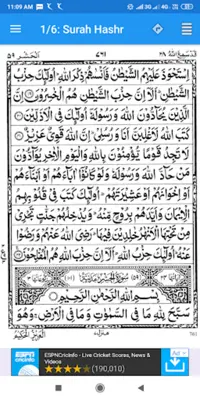 11:09 AM
1/6: Surah Hashr
قد سمع الله ٢٨ ٧٦١ الحشر ٥٩
اِسْتَحْوَذَ عَلَيْهِمُ الشَّيْطٰنُ فَاَنْسٰىهُمْ ذِكْرَ اللّٰهِ ؕ اُولٰٓئِكَ حِزْبُ
الشَّيْطٰنِ ؕ اَلَاۤ اِنَّ حِزْبَ الشَّيْطٰنِ هُمُ الْخٰسِرُوْنَ اِنَّ
الَّذِيْنَ يُحَآدُّوْنَ اللّٰهَ وَرَسُوْلَهٗۤ اُولٰٓئِكَ فِى الْاَذَلِّيْنَ
كَتَبَ اللّٰهُ لَاَغْلِبَنَّ اَنَا وَرُسُلِيْ ؕ اِنَّ اللّٰهَ قَوِيٌّ عَزِيْزٌ
لَا تَجِدُ قَوْمًا يُّؤْمِنُوْنَ بِاللّٰهِ وَالْيَوْمِ الْاٰخِرِ يُوَآدُّوْنَ
مَنْ حَآدَّ اللّٰهَ وَرَسُوْلَهٗ وَلَوْ كَانُوْۤا اٰبَآءَهُمْ اَوْ اَبْنَآءَهُمْ
اَوْ اِخْوَانَهُمْ اَوْ عَشِيْرَتَهُمْ ؕ اُولٰٓئِكَ كَتَبَ فِيْ قُلُوْبِهِمُ
الْاِيْمَانَ وَاَيَّدَهُمْ بِرُوْحٍ مِّنْهُ ؕ وَيُدْخِلُهُمْ جَنّٰتٍ تَجْرِيْ
مِنْ تَحْتِهَا الْاَنْهٰرُ خٰلِدِيْنَ فِيْهَا ؕ رَضِيَ اللّٰهُ عَنْهُمْ وَرَضُوْا
عَنْهُ ؕ اُولٰٓئِكَ حِزْبُ اللّٰهِ ؕ اَلَاۤ اِنَّ حِزْبَ اللّٰهِ هُمُ الْمُفْلِحُوْنَ
بِسْمِ اللّٰهِ الرَّحْمٰنِ الرَّحِيْمِ
سَبَّحَ لِلّٰهِ مَا فِى السَّمٰوٰتِ وَمَا فِى الْاَرْضِ ۚ وَهُوَ
الْعَزِيْزُ الْحَكِيْمُ
Ad
ESPNCricinfo - Live Cricket Scores, News & Videos
(190,010)